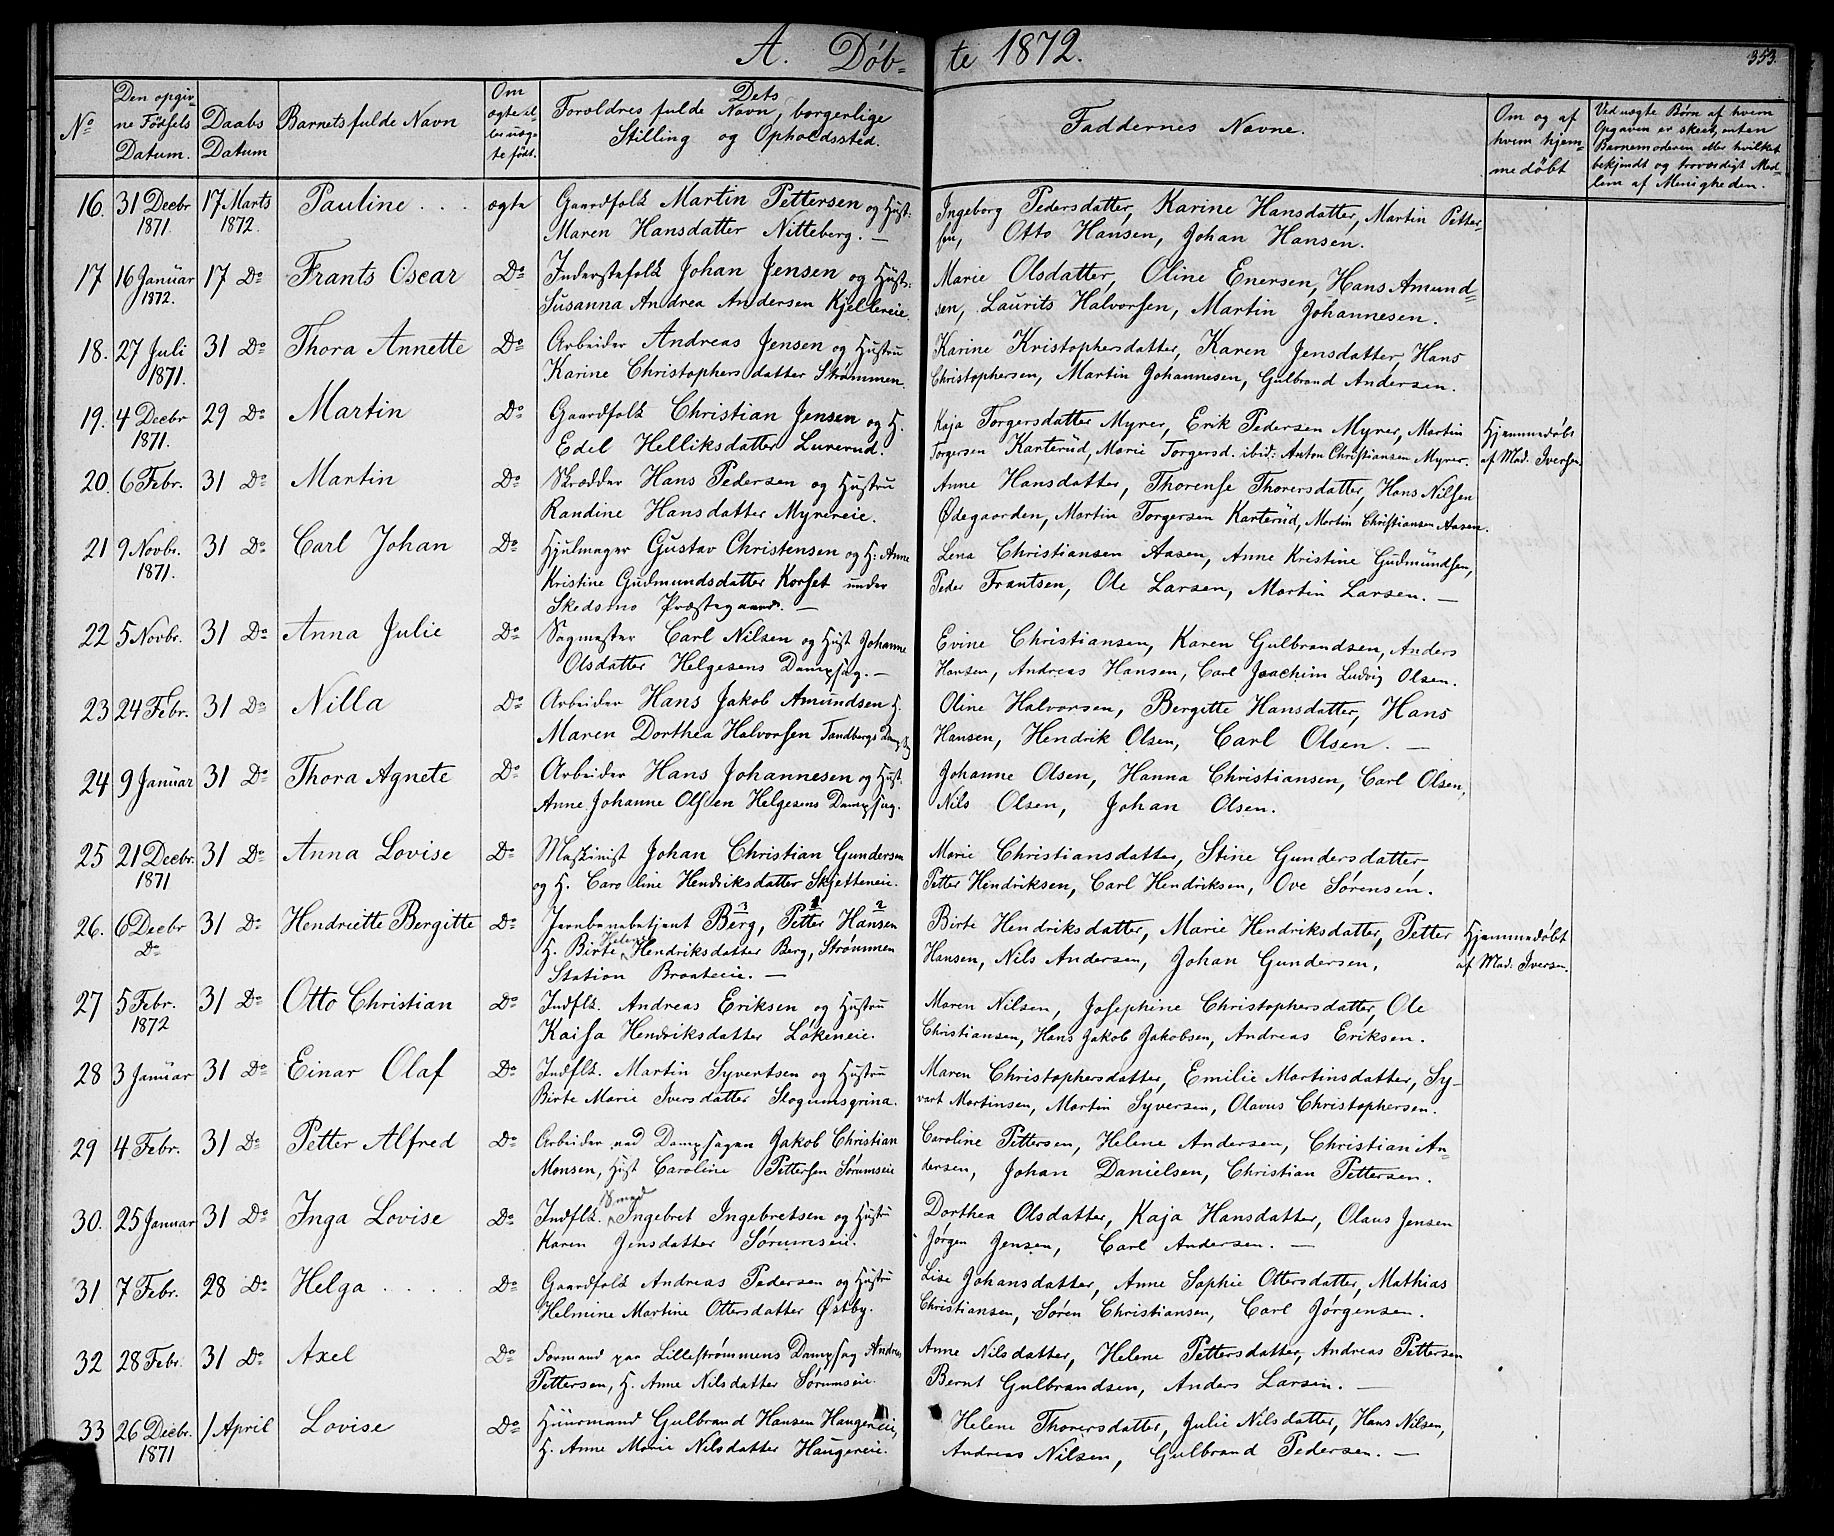 A. Døb-
te 1872.
353
No
Den opgiv-
ne Fødsels
Datum.
Daabs
Datum
Barnets fulde Navn
Om
ægte el-
ler uæg-
te født.
Dets
Forældres fulde Navn, borgerlige
Stilling og Opholdssted.
Faddernes Navne.
Om og af
hvem hjem-
medøbt
Ved uægte Børn af hvem
Opgaven er skeet, enten
Barnemoderen eller hvilket
bekjendt og troværdigt Med-
lem af Menigheden.
16. 31 Decbr 17 Marts Pauline . . . ægte Gaardfolk Martin Pettersen og Hust. Ingeborg Pedersdatter, Karine Hansdatter, Martin Petter-
1871. 1872. Maren Hansdatter Nitteberg. — sen, Otto Hansen, Johan Hansen.
17 16 Januar 17 Do Frants Oscar Do Inderstefolk Johan Jensen og Hust: Marie Olsdatter, Oline Enersen, Hans Amund-
1872. Susanna Andrea Andersen Kjellereie. sen, Laurits Halvorsen, Martin Johannesen.
18. 27 Juli 31 Do Thora Annette Do Arbeider Andreas Jensen og Hustru Karine Kristophersdatter, Karen Jensdatter, Hans
1871. Karine Christophersdatter Strømmen. Christophersen, Martin Johannesen, Gulbrand Andersen.
19. 4 Decbr 29 Do Martin Do Gaardfolk Christian Jensen og H. Kaja Torgersdatter Myrer, Erik Pedersen Myrer, Martin Hjemmedøbt
1871. Edel Helliksdatter Lurerud. Torgersen Karterud, Marie Torgersd. ibid. Anton Christiansen Myrer. af Mad. Iversen
20. 6 Febr. 31 Do Martin Do Skrædder Hans Pedersen og Hustru Anne Hansdatter, Thorense Thorersdatter, Hans Nilsen
Randine Hansdatter Myrereie. Ødegaarden, Martin Torgersen Karterud, Martin Christiansen Aasen.
21 9 Novbr. 31 Do Carl Johan Do Hjulmager Gustav Christensen og H: Anne Lena Christiansen Aasen, Anne Kristine Gudmundsen,
1871. Kristine Gudmundsdatter Korset under Peder Frantsen, Ole Larsen, Martin Larsen. —
Skedsmo Præstegaard. —
22 5 Novbr. 31 Do Anna Julie Do Sagmester Carl Nilsen og Hust Johanne Evine Christiansen, Karen Gulbrandsen, Anders
Olsdatter Helgesens Dampsag. — Hansen, Andreas Hansen, Carl Joachim Ludvig Olsen.
23 24 Febr. 31 Do Nilla Do Arbeider Hans Jakob Amundsen H. Oline Halvorsen, Bergitte Hansdatter, Hans
Maren Dorthea Halvorsen Tandbergs Dampsag Hansen, Hendrik Olsen, Carl Olsen. —
24 9 Januar 31 Do Thora Agnete Do Arbeider Hans Johannesen og Hust. Johanne Olsen, Hanna Christiansen, Carl Olsen,
Anne Johanne Olsen Helgesens Dampsag. Nils Olsen, Johan Olsen.
25 21 Decbr. 31 Do Anna Lovise Do Maskinist Johan Christian Gundersen Marie Christiansdatter, Stine Gundersdatter,
1871 og H. Caroline Hendriksdatter Skjetteneie. Petter Hendriksen, Carl Hendriksen, Ove Sørensen.
26. 6 Decbr 31 Do Hendriette Bergitte Do Jernbanebetjent Berg, 3 Petter 1 Hansen 2 Birte Hendriksdatter, Marie Hendriksdatter, Petter Hjemmedøbt
Do H. Birte Helene Hendriksdatter Berg, Strømmen Hansen, Nils Andersen, Johan Gundersen, af Mad. Iversen.
Station Braateie. —
27 5 Febr. 31 Do Otto Christian Do Indflk. Andreas Eriksen og Hustru Maren Nilsen, Josephine Christophersdatter, Ole
1872 Kaisa Hendriksdatter Løkeneie. Christiansen, Hans Jakob Jakobsen, Andreas Eriksen.
28 3 Januar 31 Do Einar Olaf Do Indflk. Martin Syvertsen og Hustru Maren Christophersdatter, Emilie Martinsdatter, Sy-
Birte Marie Iversdatter Slogumsgrina. vart Martinsen, Martin Syversen, Olavus Christophersen.
29 4 Febr. 31 Do Petter Alfred Do Arbeider ved Dampsagen Jakob Christian Caroline Pettersen, Helene Andersen, Christian An-
Monsen, Hust Caroline Pettersen Sørumseie dersen, Johan Danielsen, Christian Pettersen.
30. 25 Januar 31 Do Inga Lovise Do Indflk. Smed Ingebret Ingebretsen og Hustru Dorthea Olsdatter, Kaja Hansdatter, Olaus Jensen
Karen Jensdatter Sørumseie. Jørgen Jensen, Carl Andersen. —
31 7 Febr. 28 Do Helga . . . . Do Gaardfolk Andreas Pedersen og Hustru Lise Johansdatter, Anne Sophie Ottersdatter, Mathias
Helmine Martine Ottersdatter Østby. Christiansen, Søren Christiansen, Carl Jørgensen.
32 28 Febr. 31 Do Axel Do Formand paa Lillestrømmens Dampsag Andreas Anne Nilsdatter, Helene Pettersdatter, Andreas Pettersen
Pettersen, H. Anne Nilsdatter Sørumseie. Bernt Gulbrandsen, Anders Larsen. —
33 26 Decbr. 1 April Lovise Do Huusmand Gulbrand Hansen Haugereie, Helene Thorersdatter, Julie Nilsdatter, Hans Nilsen,
1871 H. Anne Marie Nilsdatter Haugereie. Andreas Nilsen, Gulbrand Pedersen. —